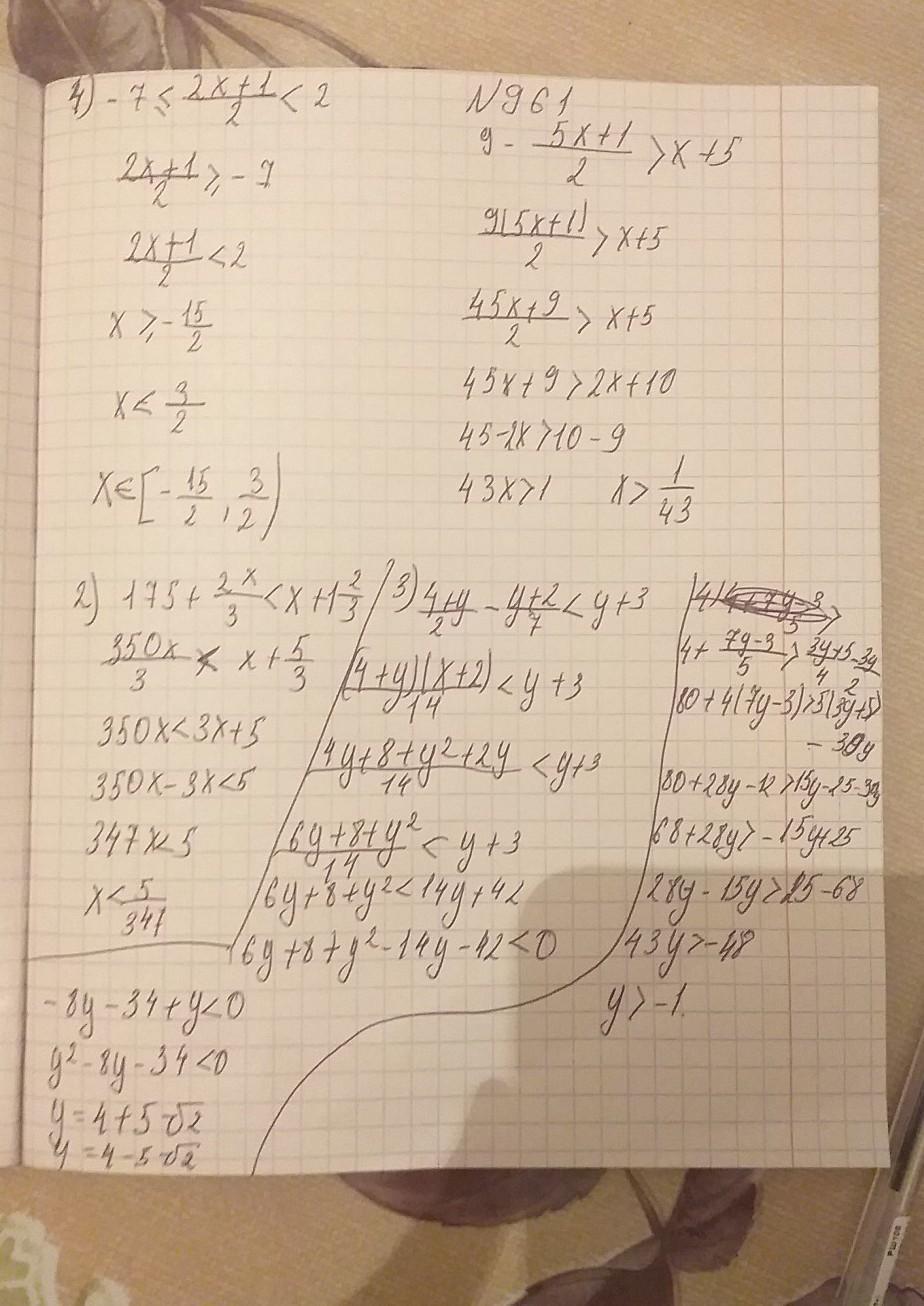 4) -7 ≤ (2x+1)/2 < 2
(2x+1)/2 ≥ -7
(2x+1)/2 < 2
x ≥ -15/2
x < 3/2
x ∈ [-15/2, 3/2)
N961
9 - (5x+1)/2 > x+5
9(5x+1)/2 > x+5
(45x+9)/2 > x+5
45x+9 > 2x+10
45-2x > 10-9
43x > 1 x > 1/43
2) 175 + 2x/3 < x + 1 2/3
350x/3 < x + 5/3
350x < 3x+5
350x-3x < 5
347x < 5
x < 5/347
3) (4+y)/2 - (y+2)/7 < y+3
(4+y)(x+2)/14 < y+3
(4y+8+y²+2y)/14 < y+3
(6y+8+y²)/14 < y+3
6y+8+y² < 14y+42
6y+8+y²-14y-42 < 0
-8y-34+y < 0
y²-8y-34 < 0
y = 4+5√2
y = 4-5√2
4)
4 + (7y-3)/5 > (3y+5)/4 - 3y/2
80+4(7y-3) > 5(3y+5)
-30y
80+28y-12 > 15y-25-30y
68+28y > -15y+25
28y-15y > 25-68
43y > -48
y > -1.
РШТОВ